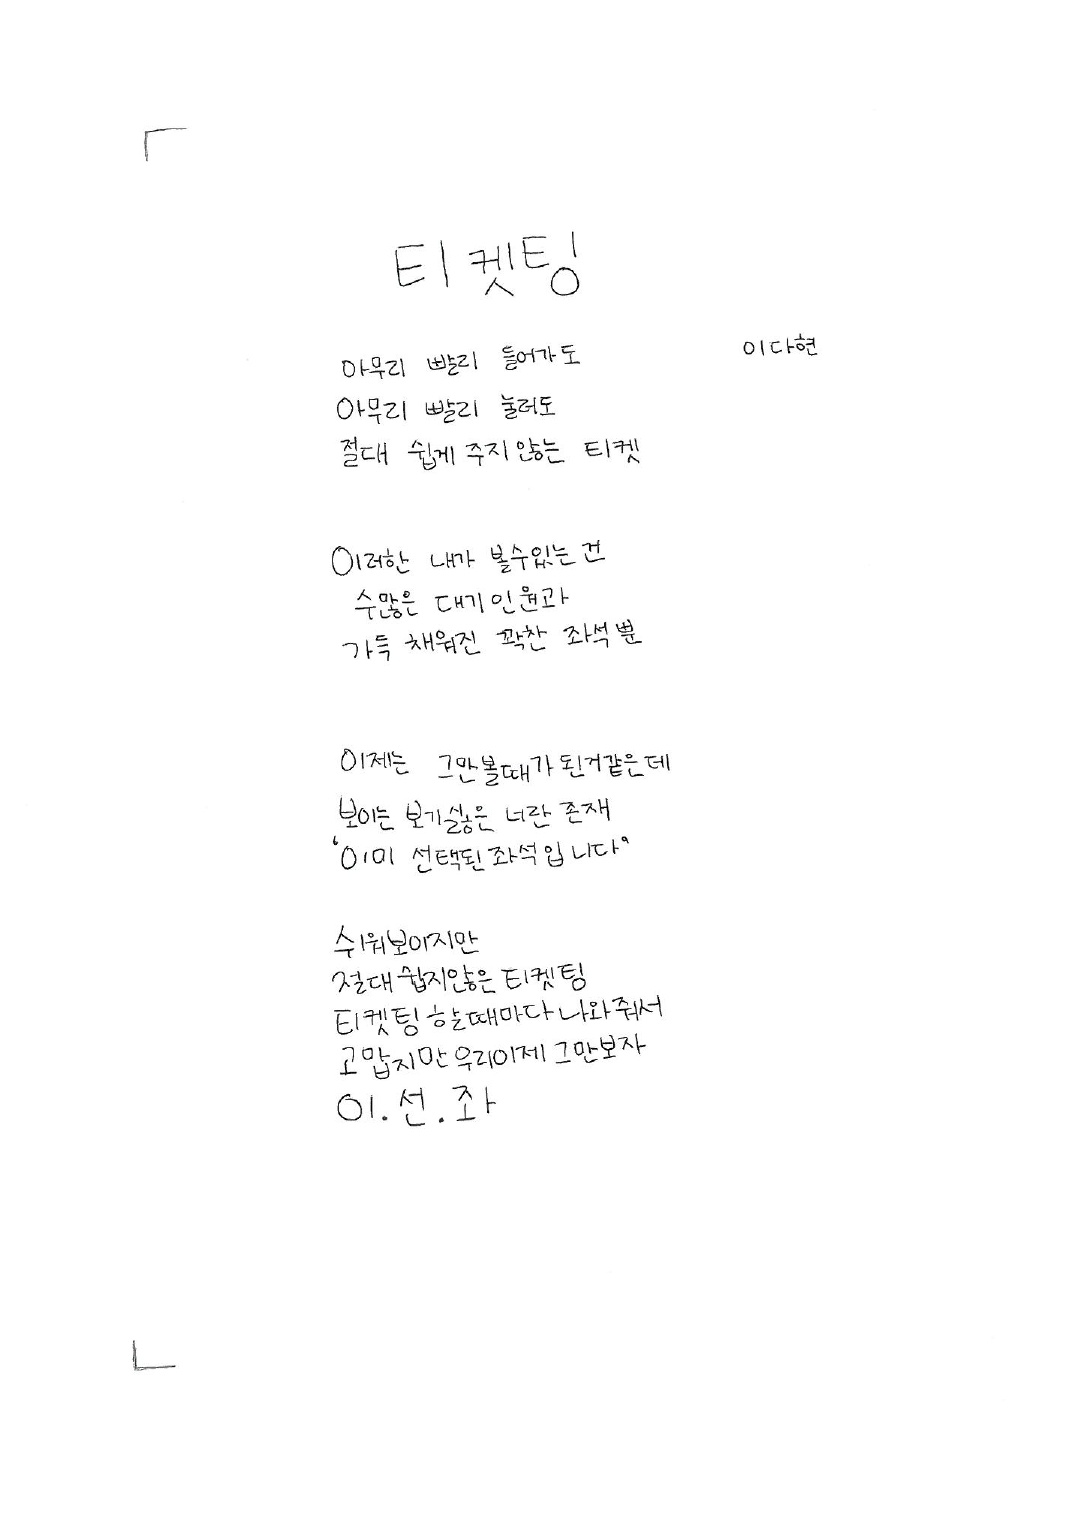 티켓팅
이다현
아무리 빨리 들어가도
아무리 빨리 눌러도
절대 쉽게 주지않는 티켓
이러한 내가 볼수있는건
수많은 대기인원과
가득 채워진 꽉찬 좌석뿐
이제는 그만볼때가된거같은데
보이는 보기싫은 너란 존재
'이미 선택된좌석입니다'
쉬워보이지만
절대쉽지않은 티켓팅
티켓팅할때마다 나와줘서
고맙지만우리이제그만보자
이.선.좌